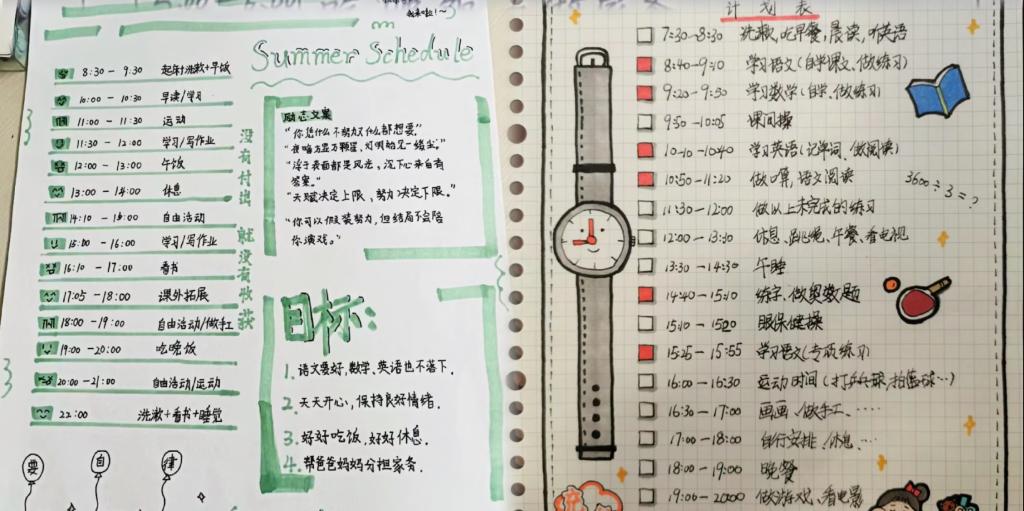 Summer Schedule
8:30 - 9:30 起床+洗漱+早饭
10:00 - 10:30 早读/学习
11:00 - 11:30 运动
11:30 - 12:00 学习/写作业
12:00 - 13:00 午饭
13:00 - 14:00 休息
14:10 - 15:00 自由活动
15:00 - 16:00 学习/写作业
16:10 - 17:00 看书
17:05 - 18:00 课外拓展
18:00 - 19:00 自由活动/做手工
19:00 - 20:00 吃晚饭
20:00 - 21:00 自由活动/运动
22:00 洗漱+看书+睡觉
没有付出 就没有收获
要 自 律
励志文案
"你凭什么不努力又什么都想要。"
"我嗨万盏万颗星,灯明的足一绪尘。"
"浮于表面都是风光,沉下心来自有
答案。"
"天赋决定上限,努力决定下限。"
"你可以假装努力,但结局不会陪
你演戏。"
目标:
1. 语文要好,数学、英语也不落下.
2. 天天开心,保持良好情绪.
3. 好好吃饭,好好休息.
4. 帮爸爸妈妈分担家务.
计划表
7:30-8:30 洗漱,吃早餐,晨读,听英语
8:40-9:10 学习语文(自学课文、做练习)
9:20-9:50 学习数学(自学、做练习)
9:50-10:05 课间操
10:10-10:40 学习英语(记单词、做阅读)
10:50-11:20 做口算,语文阅读
11:30-12:00 做以上未完成的练习
12:00-13:30 休息、跳绳、午餐、看电视
13:30-14:30 午睡
14:40-15:10 练字、做奥数题
15:10-1520 眼保健操
15:25-15:55 学习语文(专项练习)
16:00-16:30 运动时间(打乒乓球,拍篮球…)
16:30-17:00 画画、做手工、……
17:00-18:00 自行安排、休息、…
18:00-19:00 晚餐
19:00-20:00 做游戏、看电影
3600÷3=?